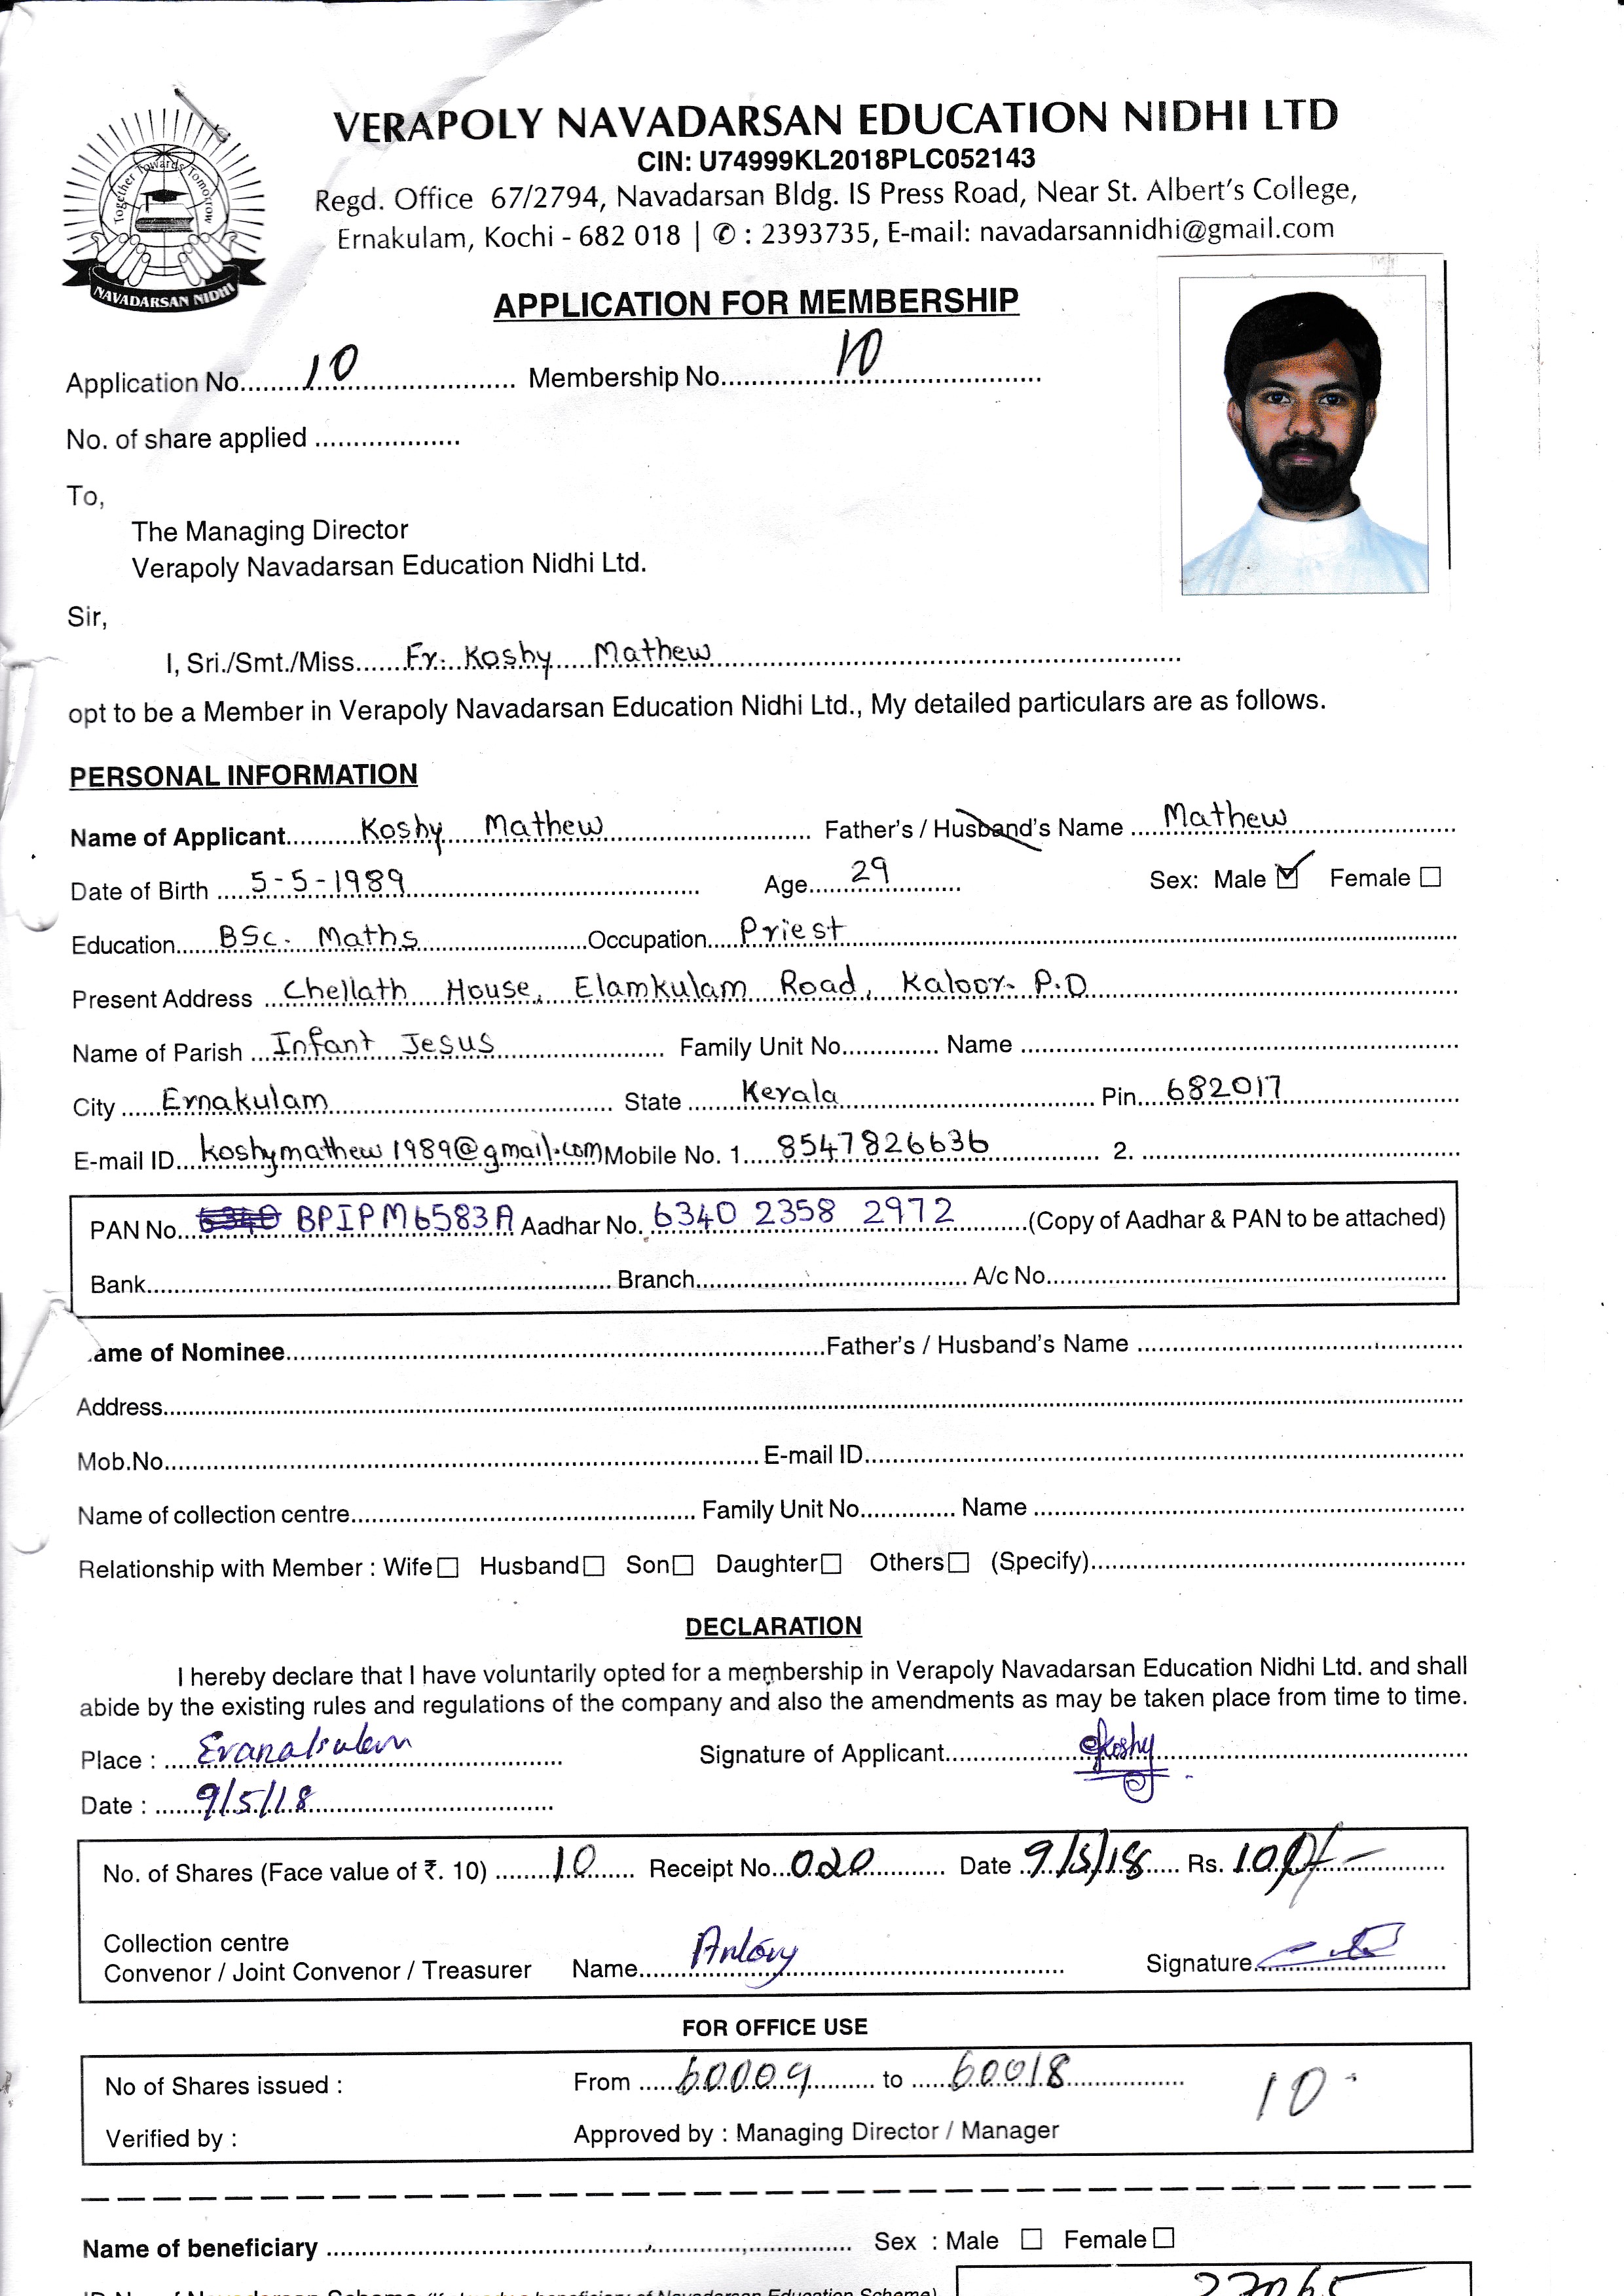 Together Towards Tomorrow
NAVADARSAN NIDHI
VERAPOLY NAVADARSAN EDUCATION NIDHI LTD
CIN: U74999KL2018PLC052143
Regd. Office 67/2794, Navadarsan Bldg. IS Press Road, Near St. Albert's College,
Ernakulam, Kochi - 682 018 | ✆ : 2393735, E-mail: navadarsannidhi@gmail.com
APPLICATION FOR MEMBERSHIP
Application No. 10 Membership No. 10
No. of share applied
To,
The Managing Director
Verapoly Navadarsan Education Nidhi Ltd.
Sir,
I, Sri./Smt./Miss. Fr. Koshy Mathew
opt to be a Member in Verapoly Navadarsan Education Nidhi Ltd., My detailed particulars are as follows.
PERSONAL INFORMATION
Name of Applicant Koshy Mathew Father's / Husband's Name Mathew
Date of Birth 5-5-1989 Age 29 Sex: Male ☑ Female ☐
Education BSc. Maths Occupation Priest
Present Address Chellath House, Elamkulam Road, Kaloor. P.O
Name of Parish Infant Jesus Family Unit No. Name
City Ernakulam State Kerala Pin 682017
E-mail ID koshymathew1989@gmail.com Mobile No. 1. 8547826636 2.
PAN No. BPIPM6583A Aadhar No. 6340 2358 2972 (Copy of Aadhar & PAN to be attached)
Bank Branch A/c No.
ame of Nominee Father's / Husband's Name
Address
Mob.No. E-mail ID
Name of collection centre Family Unit No. Name
Relationship with Member : Wife ☐ Husband ☐ Son ☐ Daughter ☐ Others ☐ (Specify)
DECLARATION
I hereby declare that I have voluntarily opted for a membership in Verapoly Navadarsan Education Nidhi Ltd. and shall
abide by the existing rules and regulations of the company and also the amendments as may be taken place from time to time.
Place : Eranakulam Signature of Applicant Koshy
Date : 9/5/18
No. of Shares (Face value of ₹. 10) 10 Receipt No. 020 Date 9/5/18 Rs. 100/-
Collection centre
Convenor / Joint Convenor / Treasurer Name Antony Signature
FOR OFFICE USE
No of Shares issued : From 60009 to 60018 10
Verified by : Approved by : Managing Director / Manager
Name of beneficiary Sex : Male ☐ Female ☐